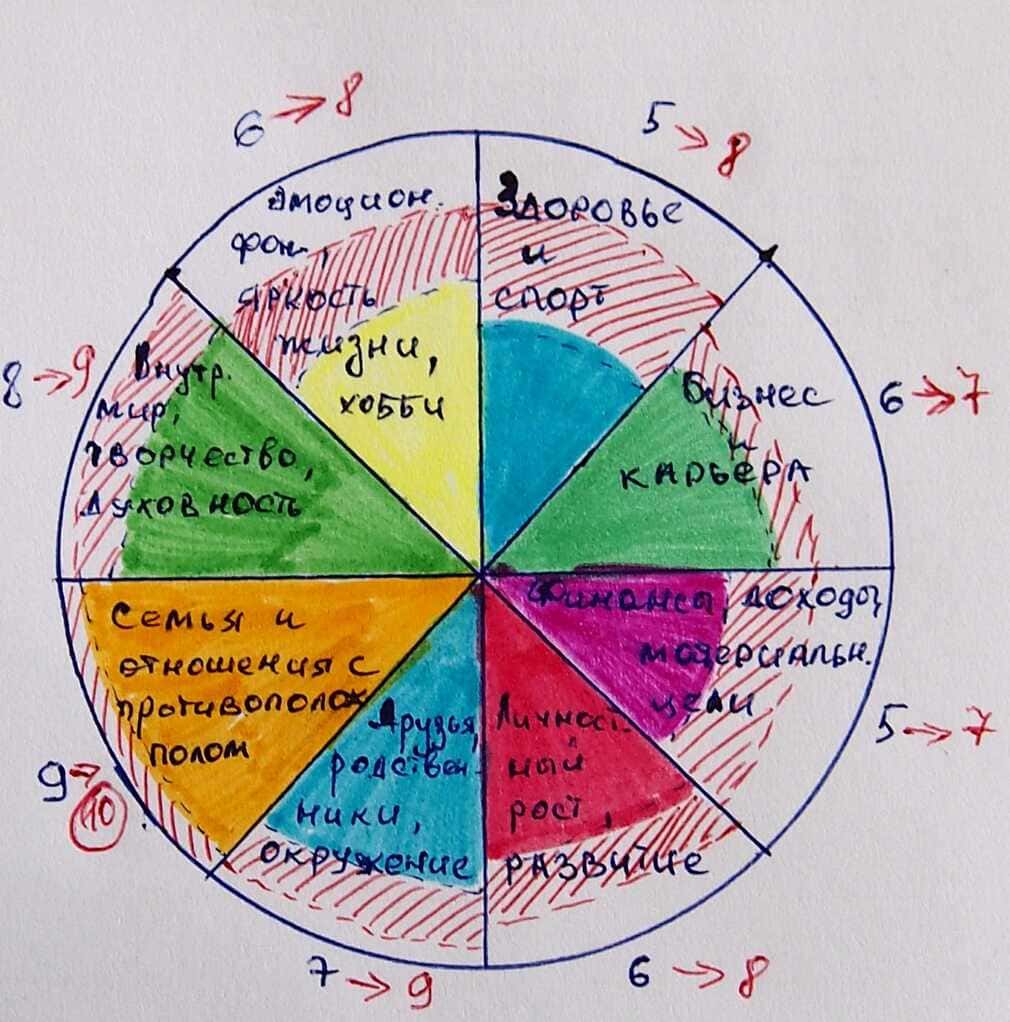 6 → 8
5 → 8
Эмоцион.
фон,
яркость
жизни,
хобби
Здоровье
и
спорт
8 → 9
Внутр.
мир,
творчество,
духовность
6 → 7
Бизнес
и
карьера
Семья и
отношения с
противополож
полом
9 →
10
Финансы, доходы,
материальн.
цели
5 → 7
Друзья,
родствен-
ники,
окружение
Личност.
ный
рост,
развитие
7 → 9
6 → 8